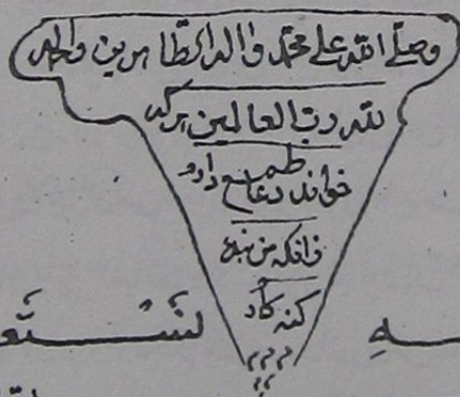 وصلّے اللّه علے محمّد وآله الطّاهرین والحمد
للّه ربّ العالمین هرکه
خواند دعا طمع دارم
زانکه من بنده
کنه کارم
لَسْـتَعـ ـهِ